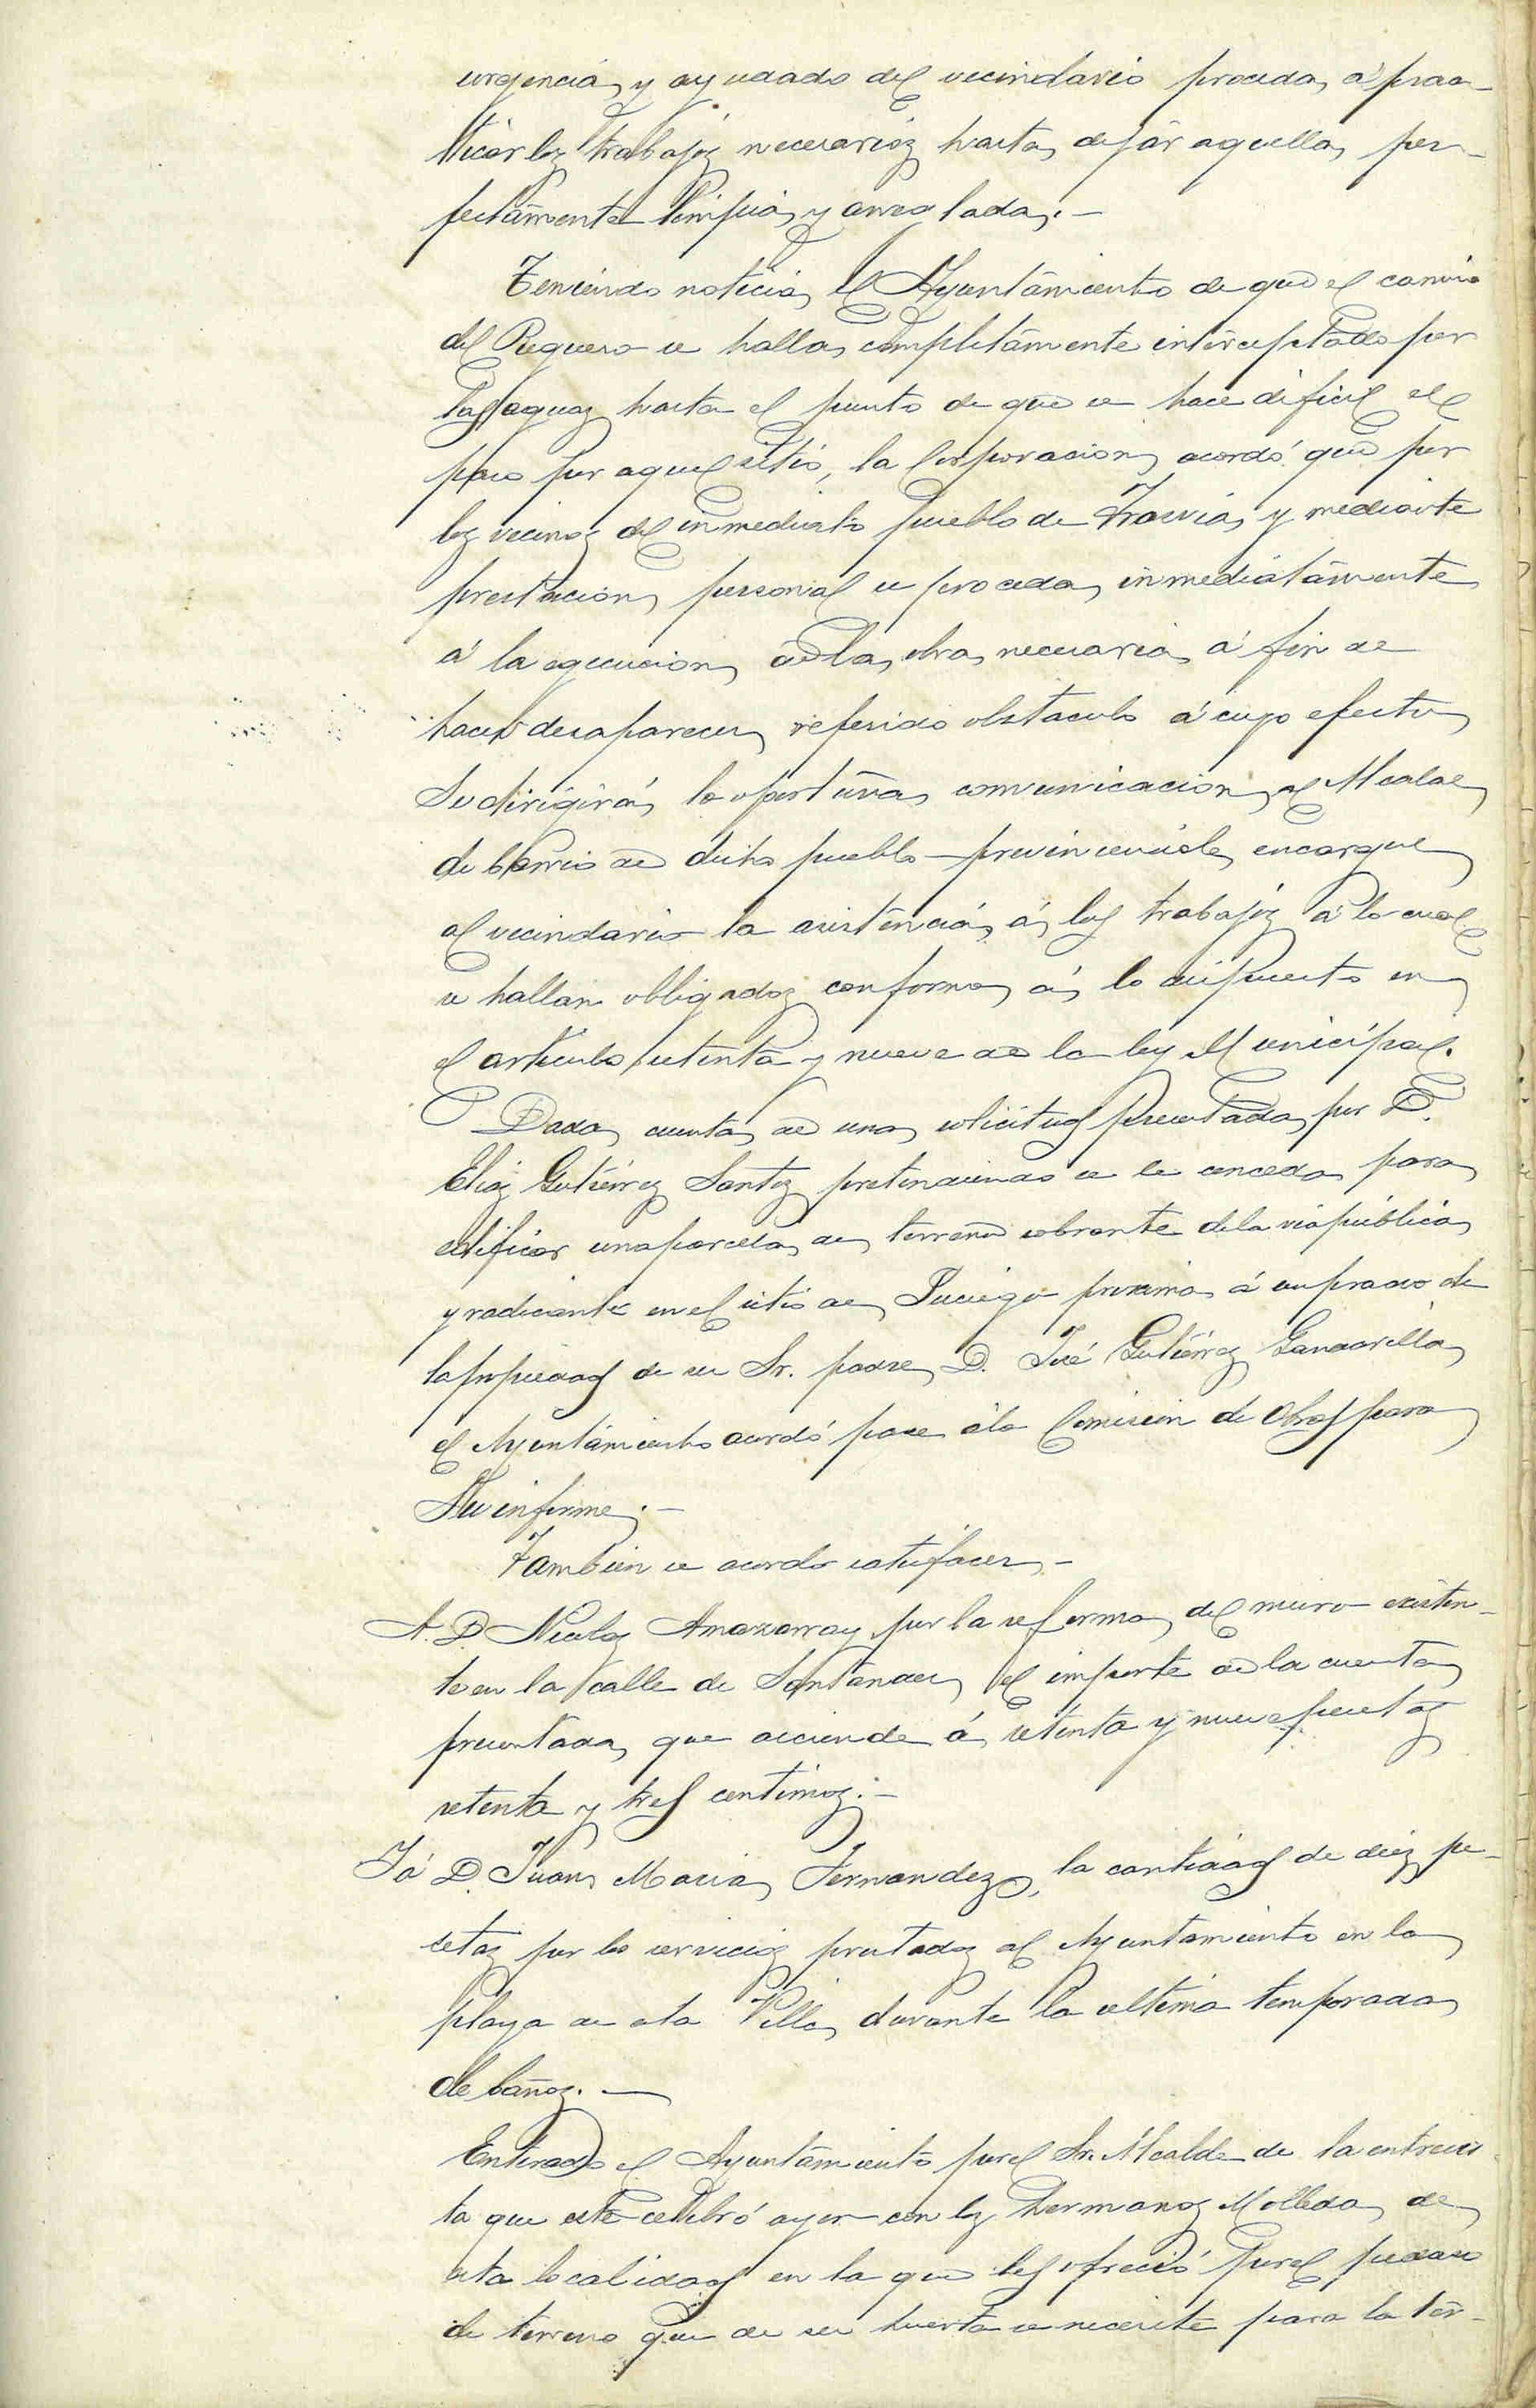 urgencia, y ayudado del vecindario proceda, á prac-
ticar los trabajos necesarios hasta dejar aquella, per-
fectamente limpia, y arreglada.—
Teniendo noticia, el Ayuntamiento de que el camino
del Reguero se halla, completamente interceptado por
las aguas hasta el punto de que se hace dificil el
paso por aquel sitio, la Corporacion, acordó que por
los vecinos del inmediato pueblo de Trasvia, y mediante
prestacion, personal se proceda, inmediatamente
á la egecucion, de la, obra, necesaria, á fin de
hacer desaparecer, referido obstaculo á cuyo efecto,
Se dirigirá, la oportuna, comunicacion, al Alcalde
de barrio de dicho pueblo previniendole, encargue
al vecindario la asistencia, á, los trabajos á lo cual
se hallan obligados conforme, á, lo dispuesto en
el articulo setenta y nueve de la ley Municipal.
Dada, cuenta, de una, solicitud presentada, por D.
Elias Gutierrez Santos pretendiendo se le conceda para
edificar una parcela, de, terreno sobrante de la via publica,
y radicante en el sitio de, proximo, á un prado de
la propiedad de su Sr. padre, D. José Gutierrez Gandarilla,
el Ayuntamiento acordó pase á la Comision de Obras para
Su informe.—
Tambien se acordo satisfacer,—
A. D. Nicolas Amazarray por la reforma, del muro existen-
te en la calle de Santander, el importe de la cuenta,
presentada, que asciende á, setenta y nueve pesetas
setenta y tres centimos.—
Y á D. Juan, Maria, Fernandez, la cantidad de diez pe-
setas por los servicios prestados al Ayuntamiento en la
playa de esta Villa, durante la ultima temporada,
de baños.—
Enterado el Ayuntamiento por el Sr. Alcalde de la entrevis
ta que este celebró ayer con los hermanos Molleda, de
esta localidad en la que les ofreció por el pedazo
de terreno que de su huerta se necesite para la ter-